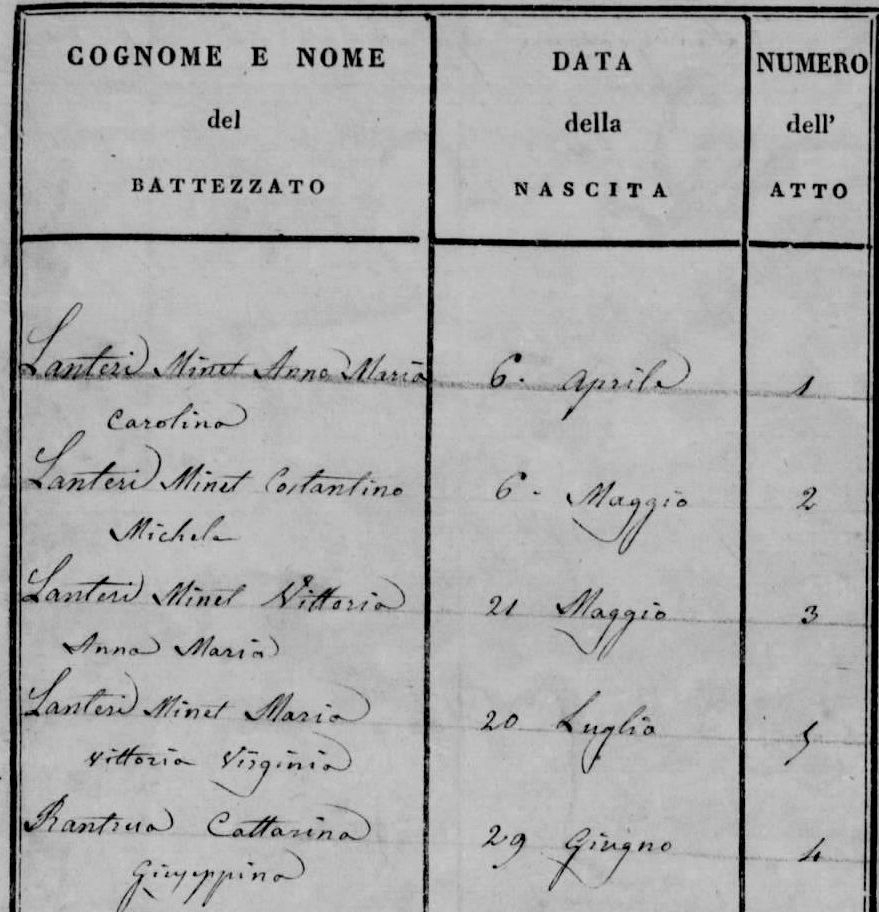 COGNOME E NOME
del
BATTEZZATO
DATA
della
NASCITA
NUMERO
dell'
ATTO
Lanteri Minet Anna Maria 6. Aprile 1
Carolina
Lanteri Minet Costantino 6. Maggio 2
Michele
Lanteri Minet Vittoria 21 Maggio 3
Anna Maria
Lanteri Minet Maria 20 Luglio 5
Vittoria Virginia
Cattarina 29 Giugno 4
Giuseppina